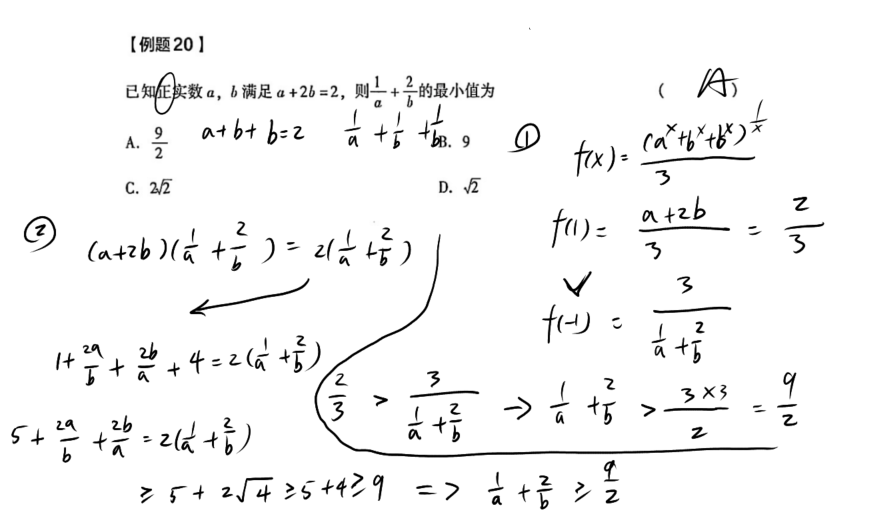 【例题20】
已知正实数 a，b 满足 a+2b=2，则 1/a + 2/b 的最小值为 ( A )
A. 9/2
B. 9
C. 2√2
D. √2
a+b+b=2 1/a + 1/b + 1/b
① f(x) = (a^x+b^x+b^x)^(1/x) / 3
f(1) = (a+2b)/3 = 2/3
✓
f(-1) = 3/(1/a + 2/b)
2/3 > 3/(1/a + 2/b) → 1/a + 2/b > (3×3)/2 = 9/2
② (a+2b)(1/a + 2/b) = 2(1/a + 2/b)
1 + 2a/b + 2b/a + 4 = 2(1/a + 2/b)
5 + 2a/b + 2b/a = 2(1/a + 2/b)
≥ 5 + 2√4 ≥ 5+4 ≥ 9 => 1/a + 2/b ≥ 9/2